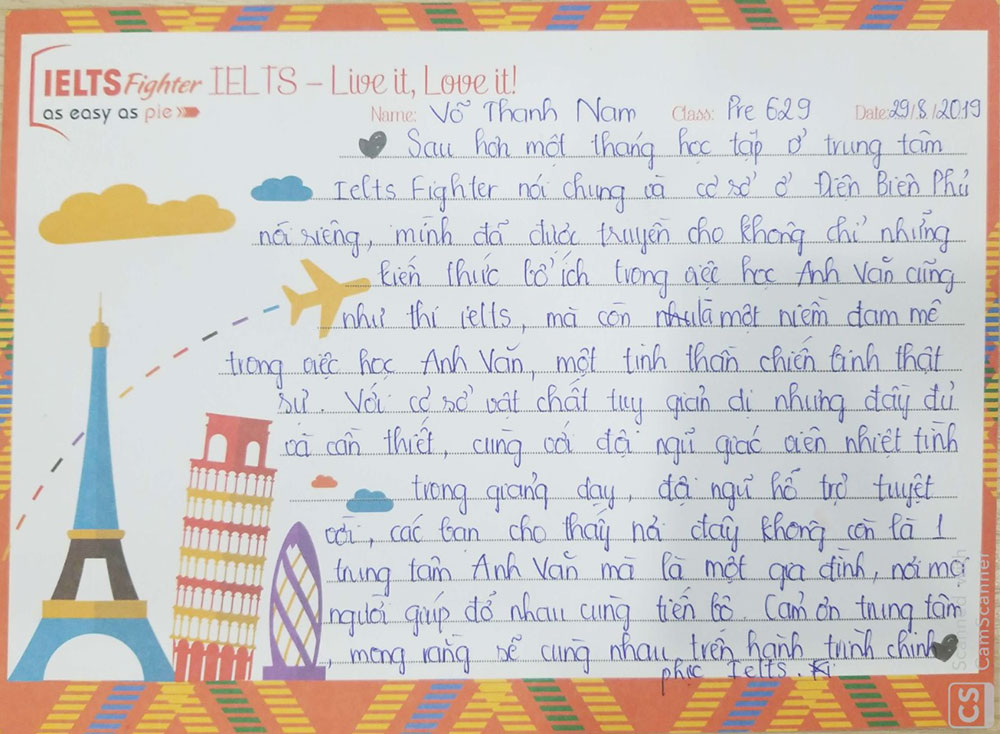 IELTS Fighter IELTS – Live it, Love it!
as easy as pie
Name: Võ Thanh Nam Class: Pre 629 Date: 29/8/2019
Sau hơn một tháng học tập ở trung tâm
Ielts Fighter nói chung và cơ sở ở Điện Biên Phủ
nói riêng, mình đã được truyền cho không chỉ những
kiến thức bổ ích trong việc học Anh Văn cũng
như thi ielts, mà còn là một niềm đam mê
trong việc học Anh Văn, một tinh thần chiến binh thật
sự. Với cơ sở vật chất tuy giản dị nhưng đầy đủ
và cần thiết, cùng với đội ngũ giác viên nhiệt tình
trong giảng dạy, đội ngũ hỗ trợ tuyệt
vời, các bạn cho thấy nơi đây không còn là 1
trung tâm Anh Văn mà là một gia đình, nơi mọi
người giúp đỡ nhau cùng tiến bộ. Cảm ơn trung tâm
, mong rằng sẽ cùng nhau trên hành trình chinh
phục Ielts.
Scanned with
CamScanner
CS